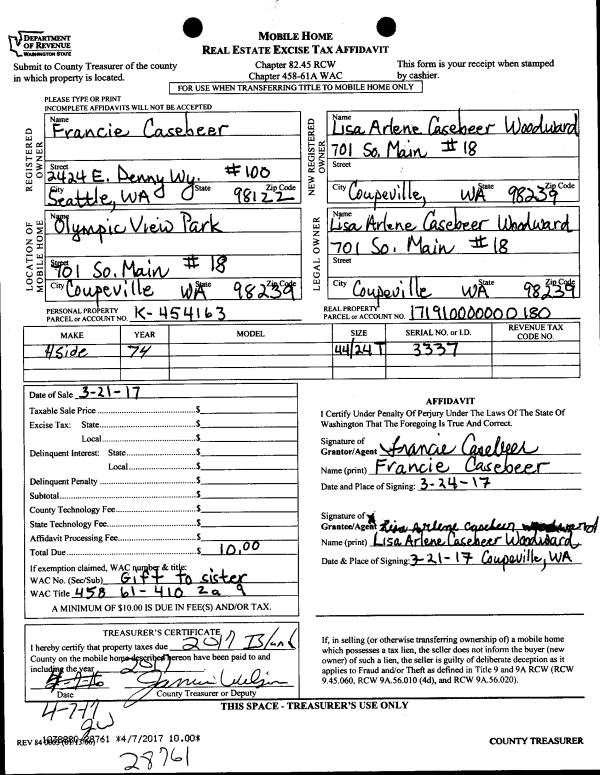 DEPARTMENT
OF REVENUE
WASHINGTON STATE
MOBILE HOME
REAL ESTATE EXCISE TAX AFFIDAVIT
Submit to County Treasurer of the county
in which property is located.
Chapter 82.45 RCW
Chapter 458-61A WAC
This form is your receipt when stamped
by cashier.
FOR USE WHEN TRANSFERRING TITLE TO MOBILE HOME ONLY
PLEASE TYPE OR PRINT
INCOMPLETE AFFIDAVITS WILL NOT BE ACCEPTED
REGISTERED OWNER
Name
Francie Casebeer
Street
2424 E. Denny Wy. #100
City State Zip Code
Seattle, WA 98122
NEW REGISTERED OWNER
Name
Lisa Arlene Casebeer Woodward
701 So. Main #18
Street
City State Zip Code
Coupeville, WA 98239
LOCATION OF MOBILE HOME
Name
Olympic View Park
Street
701 So. Main #18
City State Zip Code
Coupeville WA 98239
LEGAL OWNER
Name
Lisa Arlene Casebeer Woodward
701 So. Main #18
Street
City State Zip Code
Coupeville WA 98239
PERSONAL PROPERTY
PARCEL or ACCOUNT NO. K-454163
REAL PROPERTY
PARCEL or ACCOUNT NO. 171910000000180
MAKE YEAR MODEL SIZE SERIAL NO. or I.D. REVENUE TAX CODE NO.
Hside 74 44/24 T 3337
Date of Sale 3-21-17
Taxable Sale Price $
Excise Tax: State $
Local $
Delinquent Interest: State $
Local $
Delinquent Penalty $
Subtotal $
County Technology Fee $
State Technology Fee $
Affidavit Processing Fee $
Total Due $ 10.00
If exemption claimed, WAC number & title:
WAC No. (Sec/Sub) Gift to sister
WAC Title 458 61-410 2a 9
A MINIMUM OF $10.00 IS DUE IN FEE(S) AND/OR TAX.
AFFIDAVIT
I Certify Under Penalty Of Perjury Under The Laws Of The State Of
Washington That The Foregoing Is True And Correct.
Signature of
Grantor/Agent Francie Casebeer
Name (print) Francie Casebeer
Date and Place of Signing: 3-24-17
Signature of X
Grantee/Agent Lisa Arlene Casebeer Woodward
Name (print) Lisa Arlene Casebeer Woodward
Date & Place of Signing: 3-21-17 Coupeville, WA
TREASURER'S CERTIFICATE
I hereby certify that property taxes due 2017 Island
County on the mobile home described hereon have been paid to and
including the year 2017
Date County Treasurer or Deputy
4-7-17
If, in selling (or otherwise transferring ownership of) a mobile home
which possesses a tax lien, the seller does not inform the buyer (new
owner) of such a lien, the seller is guilty of deliberate deception as it
applies to Fraud and/or Theft as defined in Title 9 and 9A RCW (RCW
9.45.060, RCW 9A.56.010 (4d), and RCW 9A.56.020).
THIS SPACE - TREASURER'S USE ONLY
REV 84 28761 *4/7/2017 10.00*
28761
COUNTY TREASURER